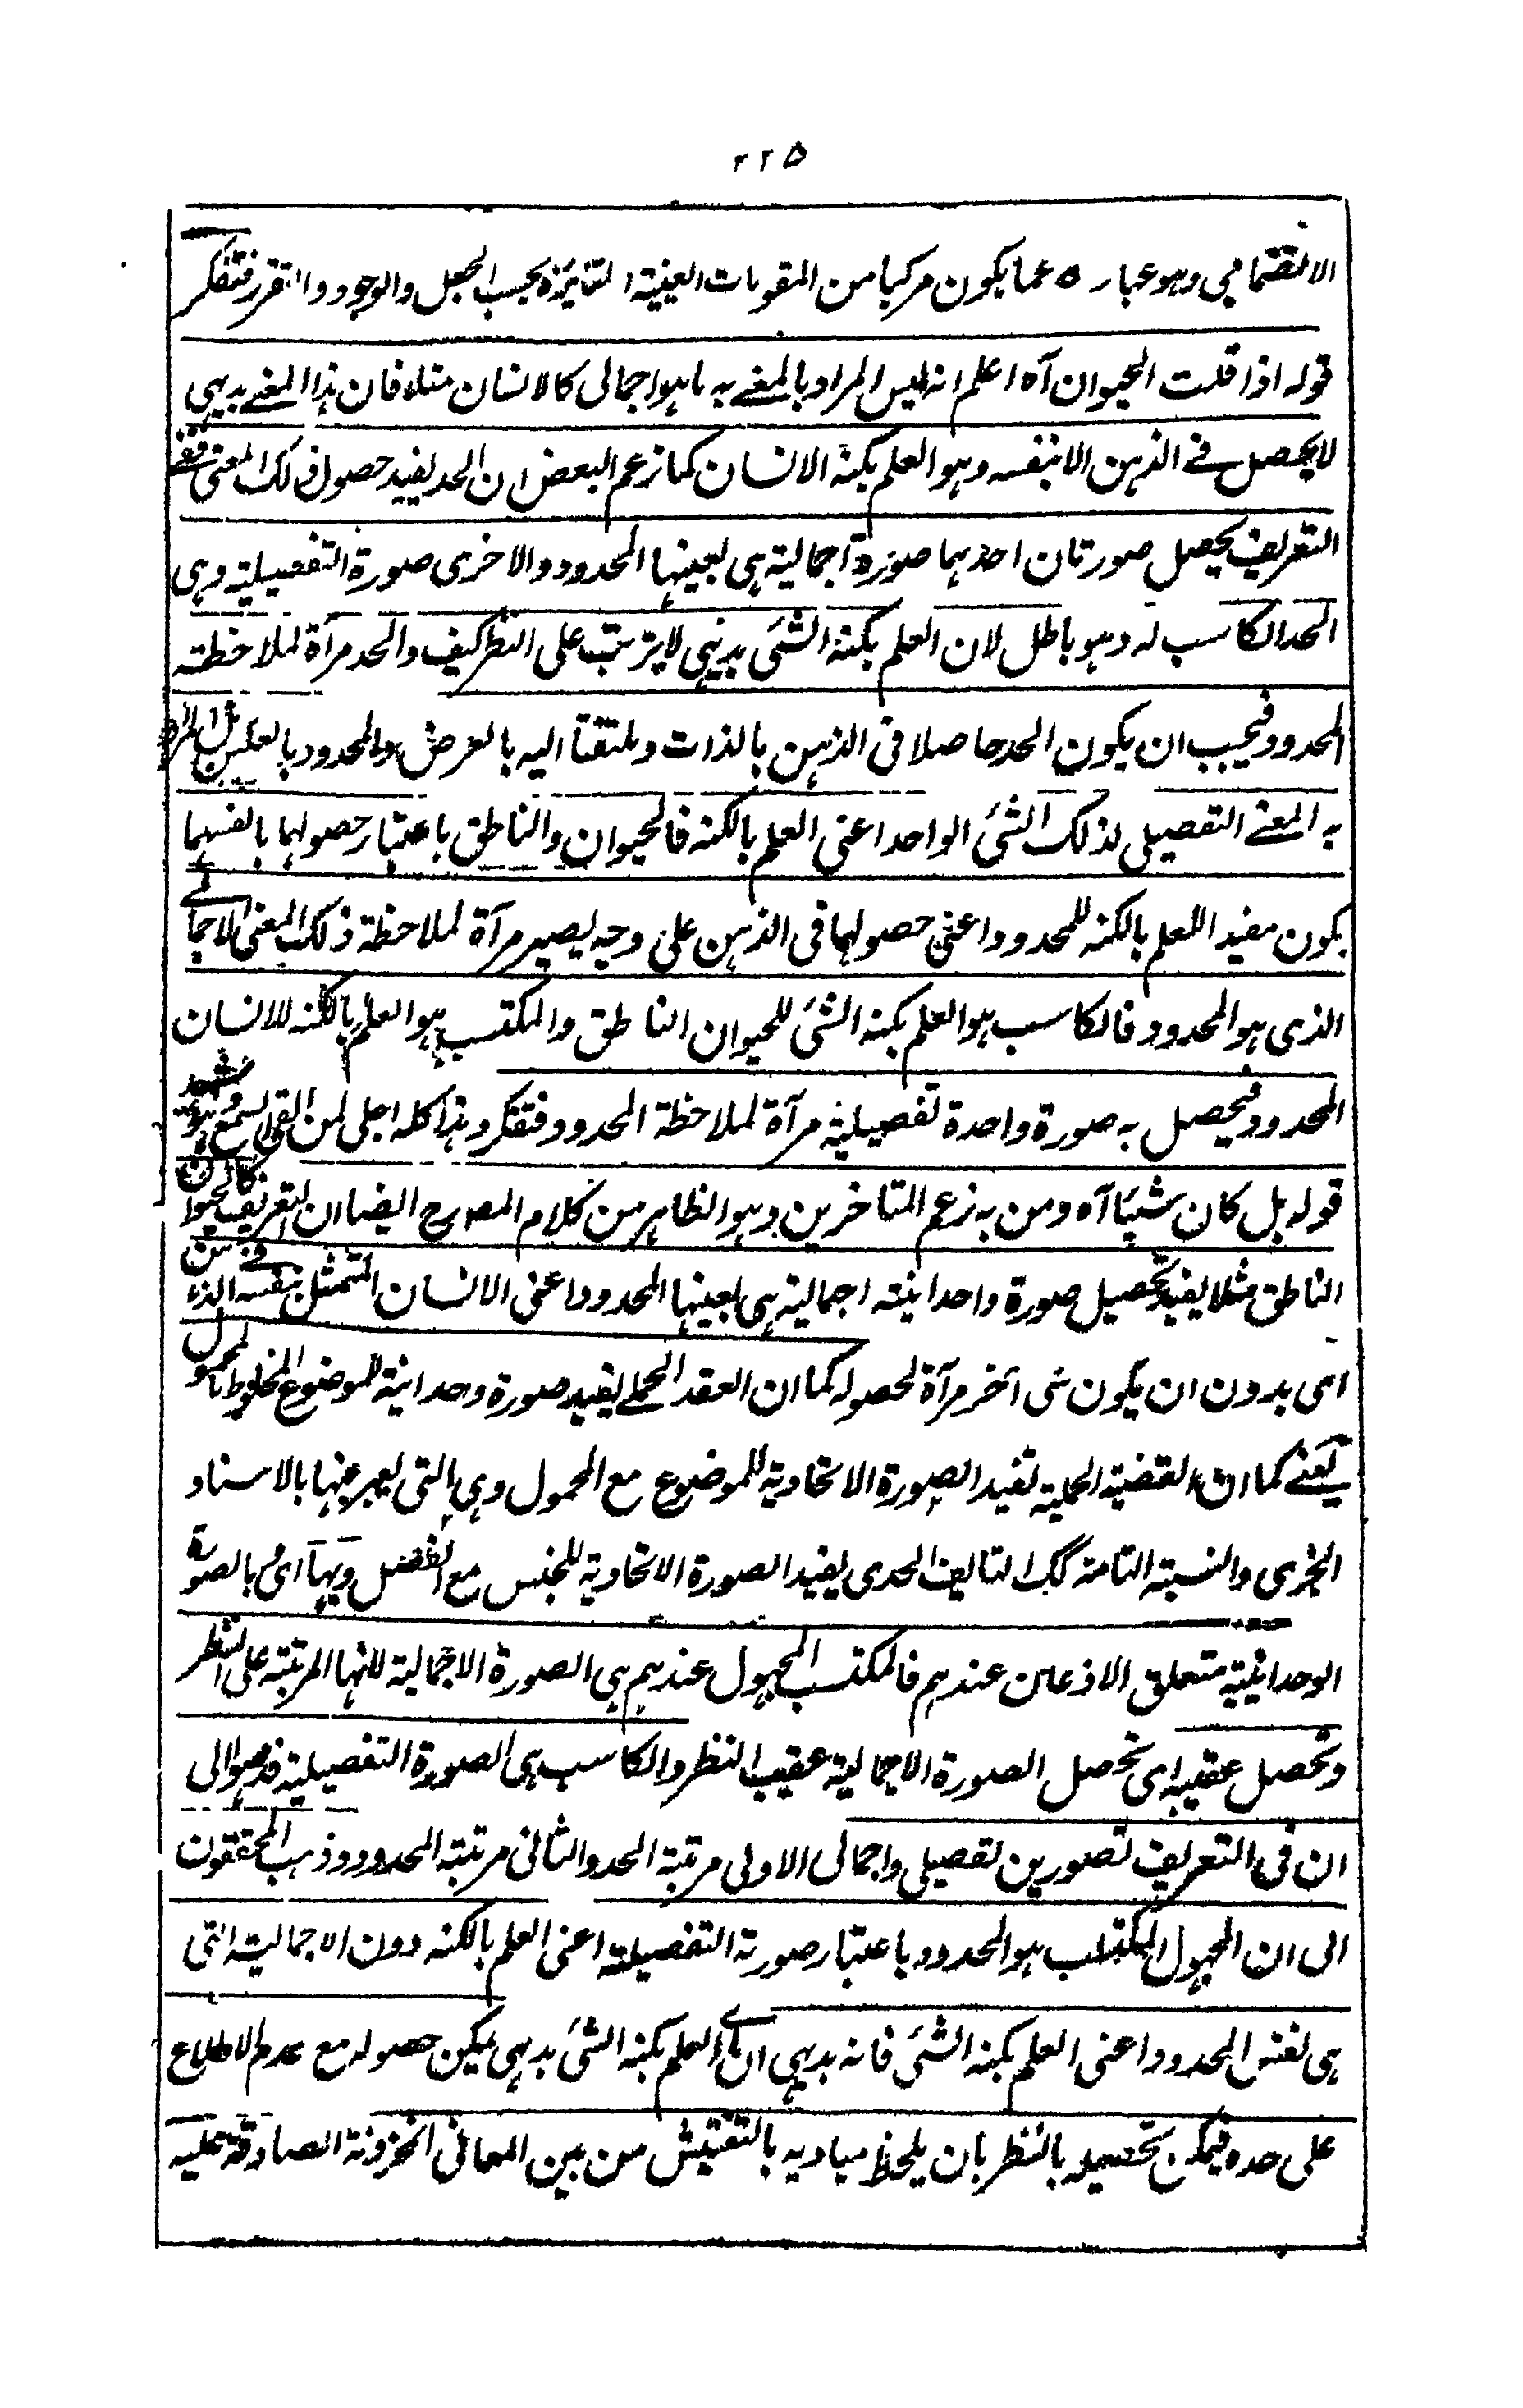 ٢٢٥
الانضمامي وهو عبارة عما يكون مركبا من المقومات العينية المتمايزة بحسب الجعل والوجود والتقرر فتفكر
قوله اذا قلت الحيوان آه اعلم انه ليس المراد بالمعنے به ما هو اجمالى كالانسان مثلا فان هذا المعنے بديهي
لا يحصل فے الذهن الا بنفسه وهو العلم بكنه الانسان كما زعم البعض ان الحد يفيد حصول ذلك المعنى ففے
التعريف يحصل صورتان احدهما صورة اجمالية هى بعينها المحدود والاخرى صورة التفصيلية وهى
الحد الكاسب له وهو باطل لان العلم بكنه الشئ بديهي لا يترتب على النظر كيف والحد مرآة لملاحظته
المحدود فيجب ان يكون الحد حاصلا فى الذهن بالذات وملتفتا اليه بالعرض والمحدود بالعكس بل المراد
به المعنے التفصيلى لذلك الشئ الواحد اعنى العلم بالكنه فالحيوان والناطق باعتبار حصولهما بانفسهما
يكون مفيد اللعلم بالكنه للمحدود اعنى حصولهما فى الذهن على وجه يصير مرآة لملاحظة ذلك المعنى الاجمالے
الذى هو المحدود فالكاسب هو العلم بكنه الشئ للحيوان الناطق والمكتسب هو العلم بالكنه للانسان
المحدود فيحصل به صورة واحدة تفصيلية مرآة لملاحظة المحدود فتفكر وهذا كله اجلى لمن القى السمع وهو شهيد
قوله بل كان شيئا آه ومن به زعم المتاخرين وهو الظاهر من كلام المصرح ايضا ان التعريف كالحيوان
الناطق مثلا يفيد تحصيل صورة واحدانية اجمالية هى بعينها المحدود اعنى الانسان المتمثل بنفسه فے الذهن
اى بدون ان يكون شى آخر مرآة لحصوله كما ان العقد الحملے يفيد صورة وحدانية للموضوع المخلوط بالمحمول
يعنے كما ان القضية الحملية تفيد الصورة الاتحادية للموضوع مع المحمول وهى التى يعبر عنها بالاسناد
الخبرى والنسبة التامة كك التاليف الحدى يفيد الصورة الاتحادية للجنس مع الفصل وبها اى بالصورة
الوحدانية متعلق الاذعان عندهم فالمكتسب المجهول عندهم هى الصورة الاجمالية لانها المرتبة على النظر
وتحصل عقيبه اى تحصل الصورة الاجمالية عقيب النظر والكاسب هى الصورة التفصيلية فذهبوا الى
ان فى التعريف تصورين تفصيلى واجمالى الاولى مرتبة الحد والثانى مرتبة المحدود وذهب المحققون
الى ان المجهول المكتسب هو المحدود باعتبار صورته التفصيلية اعنى العلم بالكنه دون الاجمالية التى
هى نفس المحدود اعنى العلم بكنه الشئ فانه بديهي اى العلم بكنه الشئ بديهى يمكن حصوله مع عدم الاطلاع
على حده فيمكن تحصيله بالنظر بان يلحظ مباديه بالتفتيش من بين المعانى المخزونة الصادقة عليه